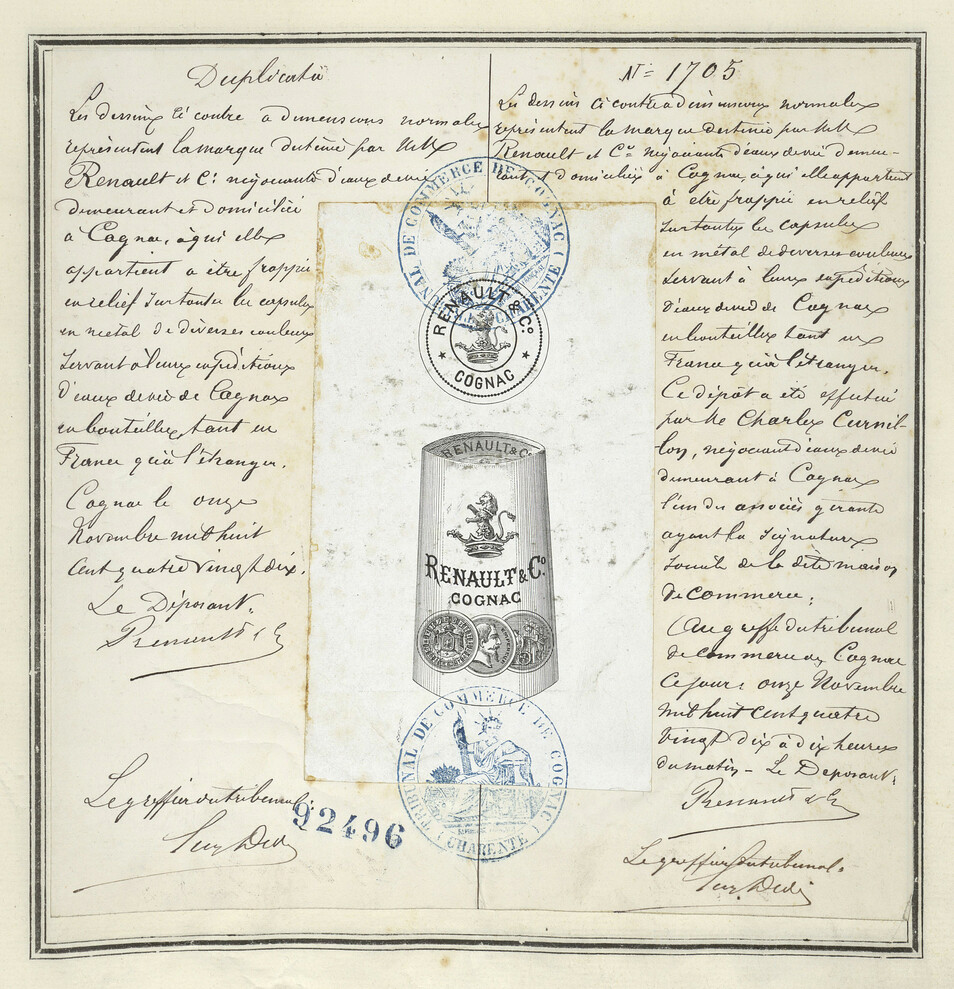 Duplicata
Les dessins ci contre à dimensions normales
représentent la marque destinée par MM
Renault et Cie négociants d'eaux de vie
demeurant et domiciliés
à Cognac, à qui elle
appartient à être frappée
en relief sur toutes les capsules
en métal de diverses couleurs
servant à leurs expéditions
d'eaux de vie de Cognac
en bouteilles, tant en
France qu'à l'étranger.
Cognac le onze
Novembre mil huit
cent quatre vingt dix.
Le Déposant.
Renault & Co
Le greffier du tribunal.
92496
TRIBUNAL DE COMMERCE DE COGNAC
(CHARENTE)
RENAULT & Co
COGNAC
RENAULT & Co
RENAULT & Co
COGNAC
TRIBUNAL DE COMMERCE DE COGNAC
(CHARENTE)
No 1705
Les dessins ci contre à dimensions normales
représentent la marque destinée par MM
Renault et Cie négociants d'eaux de vie demeu-
rant et domiciliés à Cognac, à qui elle appartient
à être frappée en relief
sur toutes les capsules
en métal de diverses couleurs
servant à leurs expéditions
d'eaux de vie de Cognac
en bouteilles tant en
France qu'à l'étranger.
Ce dépôt a été effectué
par Me Charles Curnil-
lon, négociant d'eaux de vie
demeurant à Cognac
l'un des associés gérants
ayant la signature
sociale de la dite maison
de commerce.
Au greffe du tribunal
de commerce de Cognac
ce jour onze Novembre
mil huit cent quatre
vingt dix à dix heures
du matin - Le Déposant.
Renault & Co
Le greffier du tribunal.